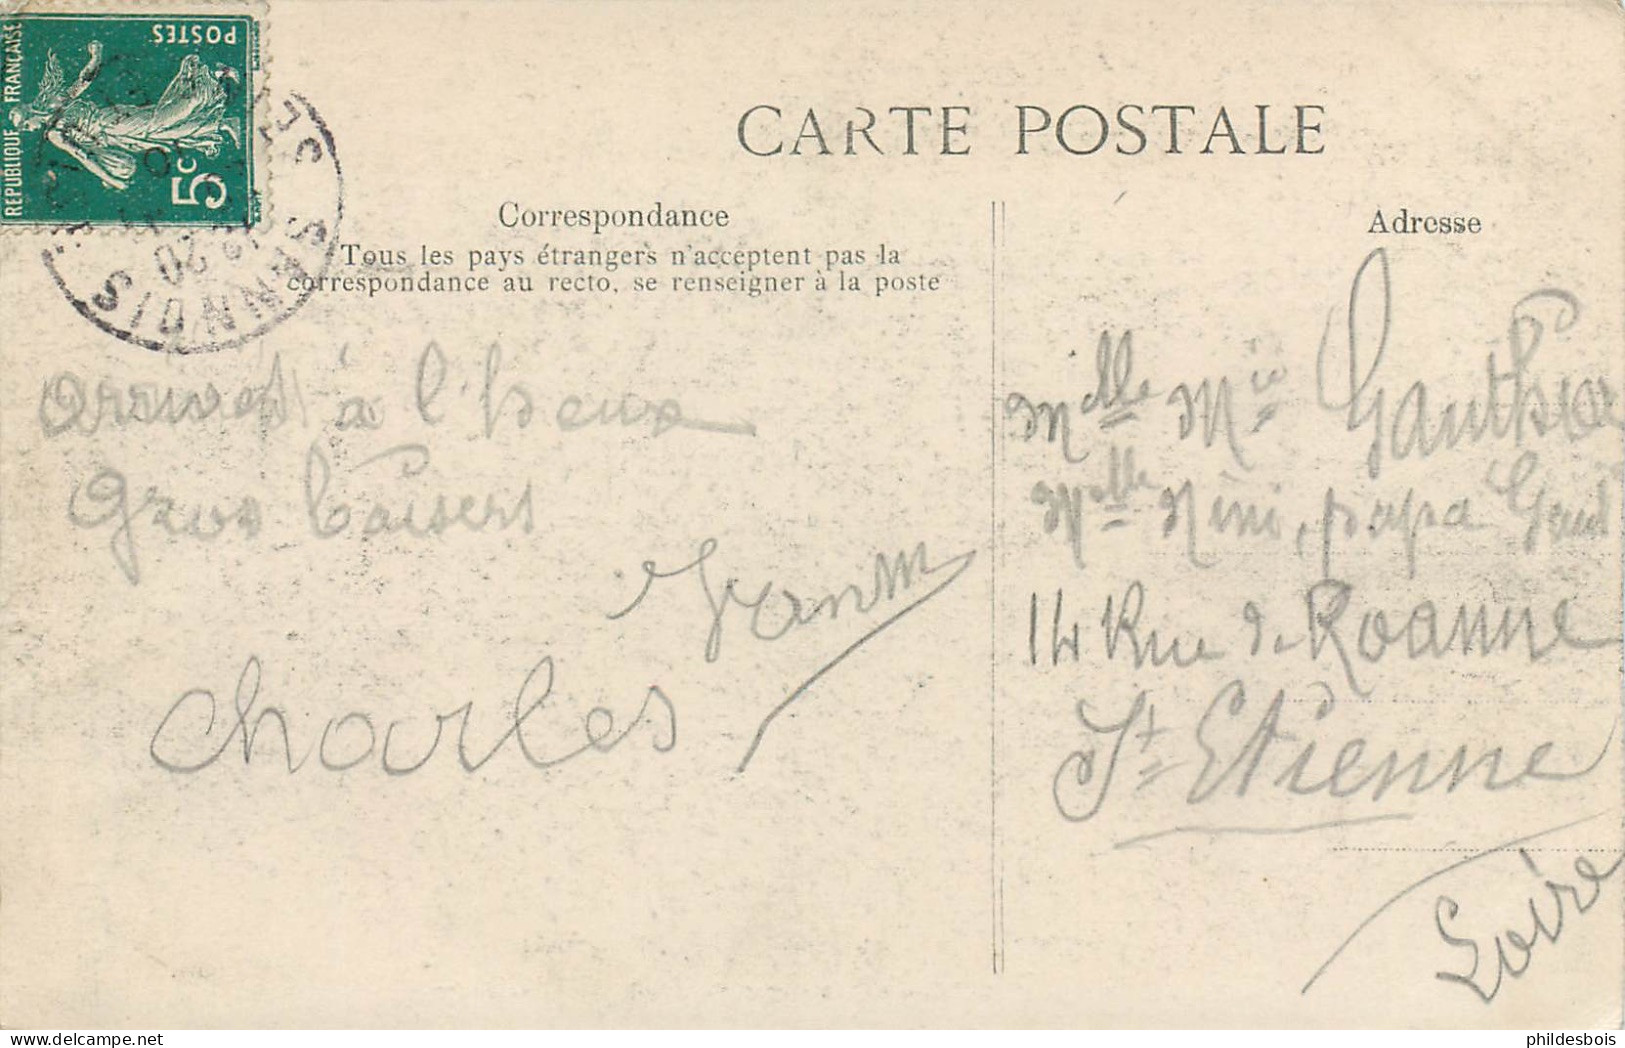 POSTES
REPUBLIQUE FRANÇAISE
5c
20
CARTE POSTALE
Correspondance
Tous les pays étrangers n'acceptent pas la
correspondance au recto, se renseigner à la poste
à l'heure
Gros baisers
Charles
Adresse
Mlle Mie Gauthier
Mlle Nini, papa
14 Rue de Roanne
St Etienne
Loire
phildesbois